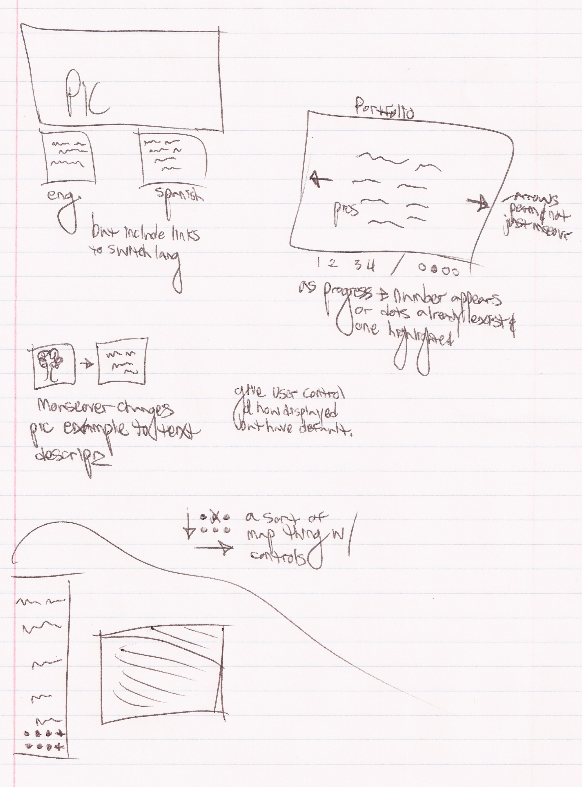 PIC
eng
spanish
but include links
to switch lang
Portfolio
pics
arrows
perm not
just m.over
1 2 3 4 / 0 0 0 0
as progress → number appears
or dots already exist &
one highlighted
Mouseover changes
pic example to text
descrip
give user control
of how displayed
but have default.
a sort of
map thing w/
controls